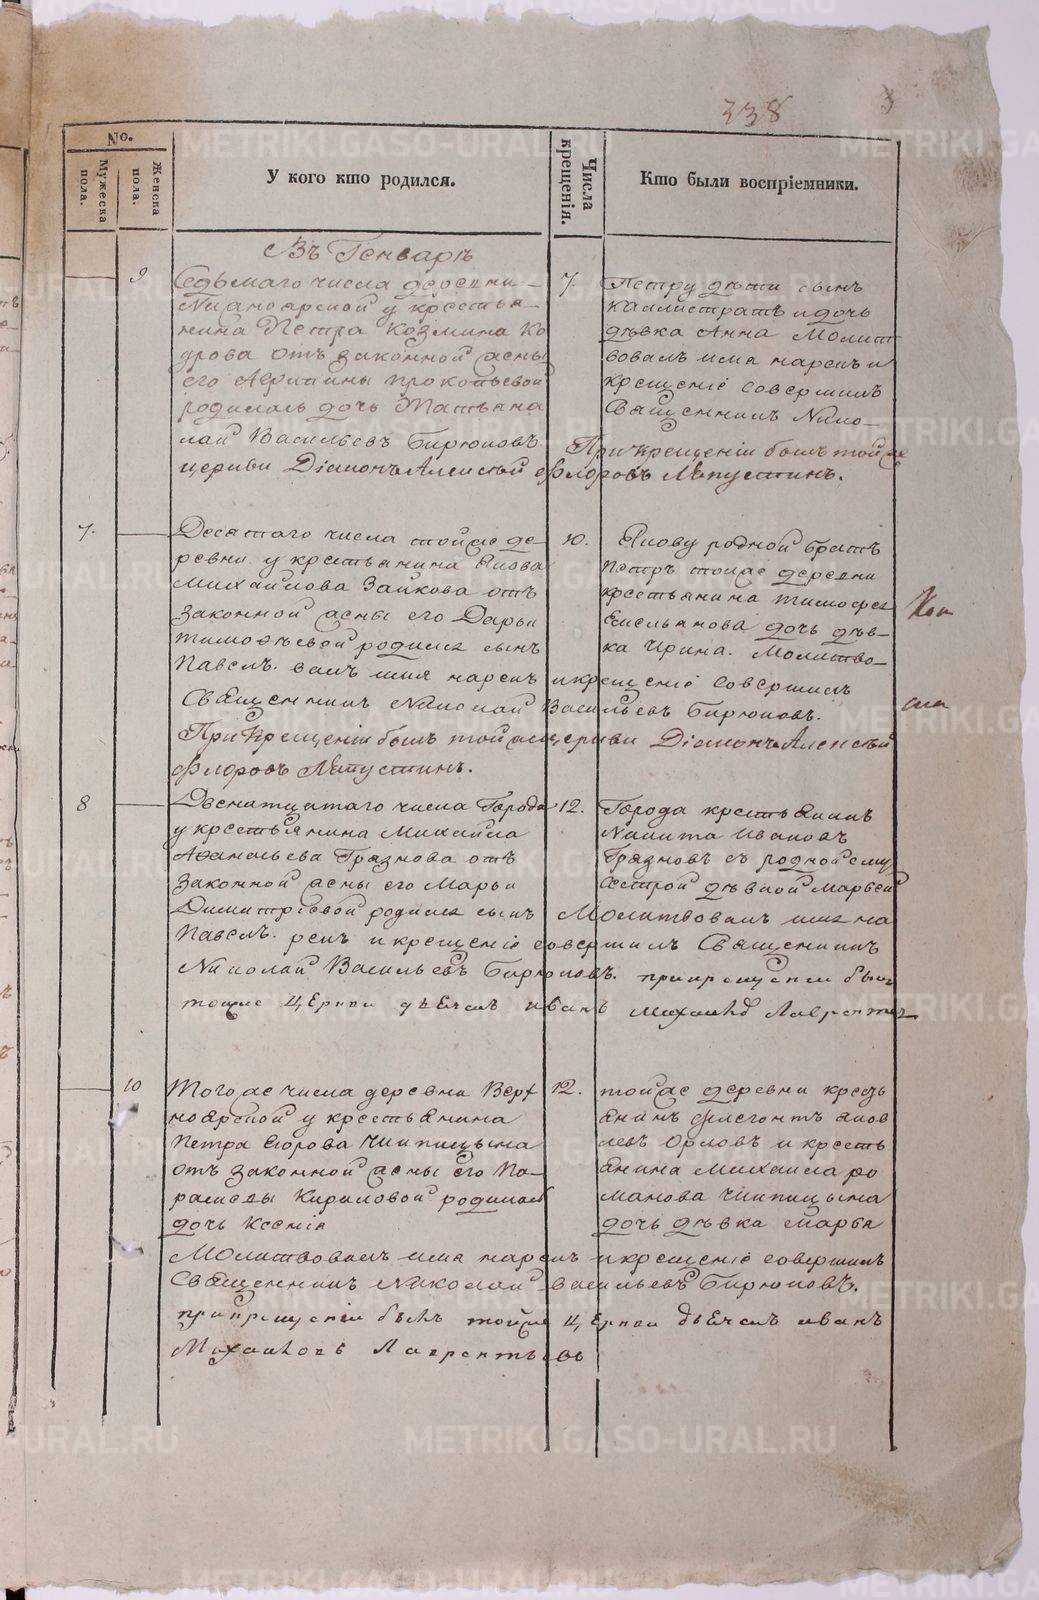 238
3
No.
Мужеска пола.
Женска пола.
У кого кто родился.
Числа крещенія.
Кто были воспріемники.
Въ Генварѣ
9
Седьмаго числа деревни
у крестья-
нина Петра Козмина Ко
рова отъ законной жены
его прокопьевой
родилась дочь Татьяна
7.
Петру дѣти сынъ
Каллистратъ и дочь
дѣвка Анна Молит
вовалъ имя нарекъ и
крещеніе совершилъ
Священникъ Нико-
лай Васильевъ Бирюковъ При крещеніи былъ тойже
церкви Діаконъ Алексѣй Флоровъ Лапустинъ.
7.
Десятаго числа тойже де-
ревни у крестьянина Якова
Михайлова Зайкова отъ
законной жены его Дарьи
тимофѣевой родился сынъ
Павелъ.
10.
Якову родной братъ
Петръ тоже деревни
крестьянина тимофея
Емельянова дочь дѣв-
ка Ирина. Молитво-
валъ имя нарекъ и крещеніе совершилъ
Священникъ Николай Васильевъ Бирюковъ.
При Крещеніи былъ тойже церкви Діаконъ Алексѣй
Флоровъ Лапустинъ.
8
Двенатцатаго числа Города
у крестьянина Михайла
Афанасьева Грязнова отъ
законной жены его Марьи
Димитріевой родился сынъ
Павелъ.
12.
Города крестьянинъ
Никита Ивановъ
Грязновъ съ родной ему
сестрой дѣвкой Марьей
Молитвовалъ имя на
рекъ и крещеніе совершилъ Священникъ
Николай Васильевъ Бирюковъ. при крещении былъ
тойже церкви дьечекъ иванъ Михайловъ
10
Того же числа деревни Верх
ноярской у крестьянина
Петра Егорова Чипицына
отъ законной жены его Па-
раскевы Кириловой родилась
дочь Ксенія
12.
тойже деревни кресть
янинъ Флегонтъ Яков
левъ Орловъ и кресть
янина Михаила ро
манова Чипицына
дочь дѣвка Марья
Молитвовалъ имя нарекъ и крещеніе совершилъ
Священникъ Николай Васильевъ Бирюковъ.
при крещеніи былъ тойже церкви дьечекъ иванъ
Михайловъ Лаврентьевъ
METRIKI.GASO-URAL.RU